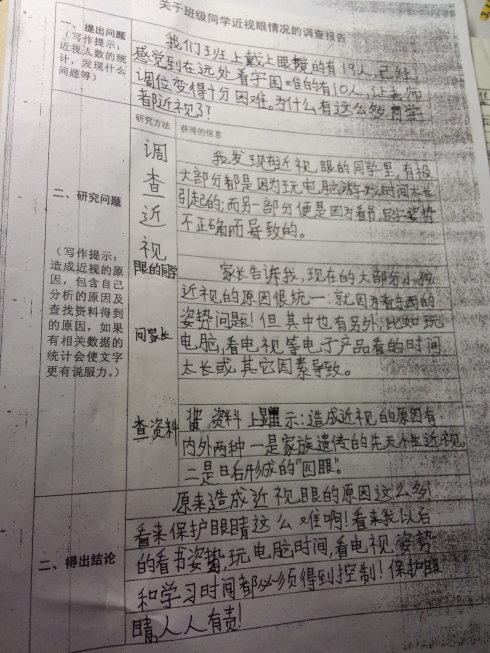 关于班级同学近视眼情况的调查报告
一、提出问题
（写作提示：
近视人数的统
计，发现什么
问题等）
我们班上戴上眼镜的有19人，已经
感觉到在远处看字困难的有10人，让老师
调位变得十分困难。为什么有这么多同学
都近视了？
二、研究问题
（写作提示：
造成近视的原
因，包含自己
分析的原因及
查找资料得到
的原因，如果
有相关数据的
统计会使文字
更有说服力。）
研究方法
获得的信息
调
查
近
视
眼的同学
我发现在近视眼的同学里，有极
大部分都是因为玩电脑游戏时间太长
引起的；而另一部分便是因为看书、写字姿势
不正确而导致的。
问家长
家长告诉我，现在的大部分小孩
近视的原因很统一：就因为看东西的
姿势问题！但其中也有另外，比如玩
电脑，看电视等电子产品看的时间
太长或其它因素导致。
查资料
资料上显示：造成近视的原因有
内外两种一是家族遗传的先天性近视，
二是日后形成的“四眼”。
二、得出结论
原来造成近视眼的原因这么多！
看来保护眼睛这么难啊！看来我以后
的看书姿势，玩电脑时间，看电视姿势
和学习时间都必须得到控制！保护眼
睛，人人有责！